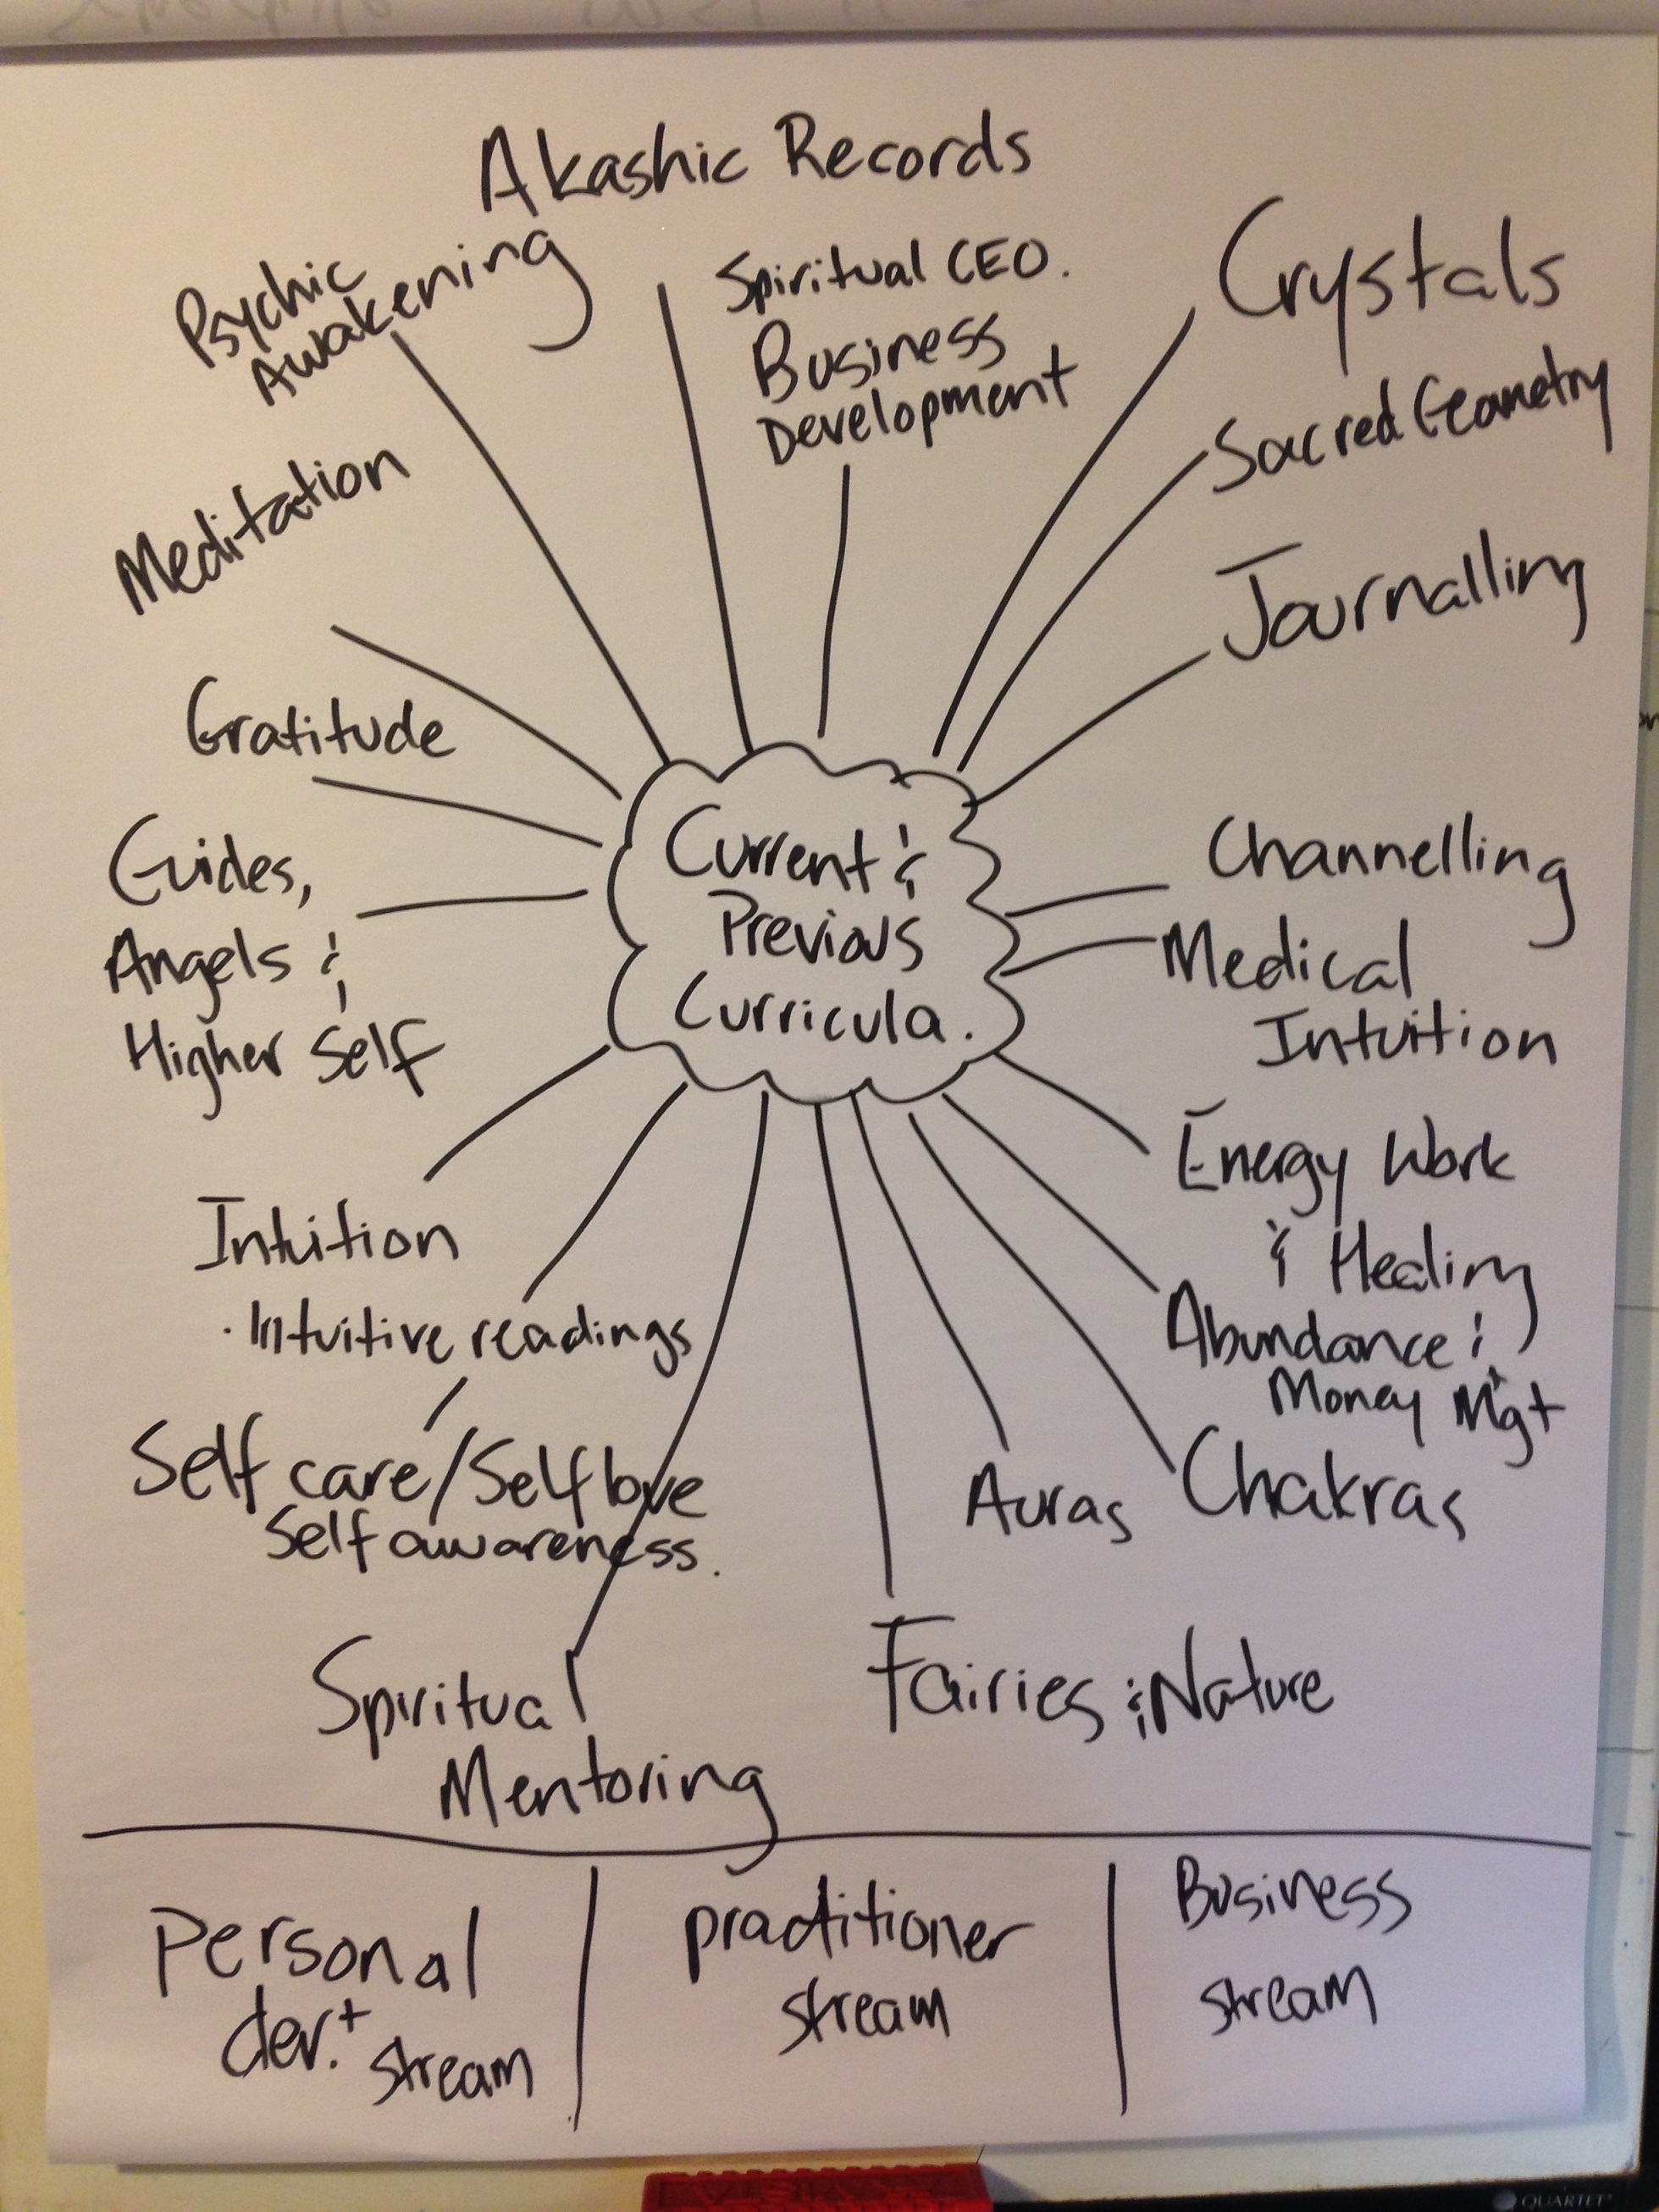 Akashic Records
Psychic
Awakening
Spiritual CEO.
Business
Development
Crystals
Sacred Geometry
Journalling
Meditation
Gratitude
Guides,
Angels &
Higher Self
Current &
Previous
Curricula.
Channelling
Medical
Intuition
Energy Work
& Healing
Abundance &
Money Mgt
Chakras
Auras
Intuition
· Intuitive readings
Self care/Self love
Self awareness.
Spiritual
Mentoring
Fairies & Nature
Personal
dev.t
stream
practitioner
stream
Business
stream
QUARTET